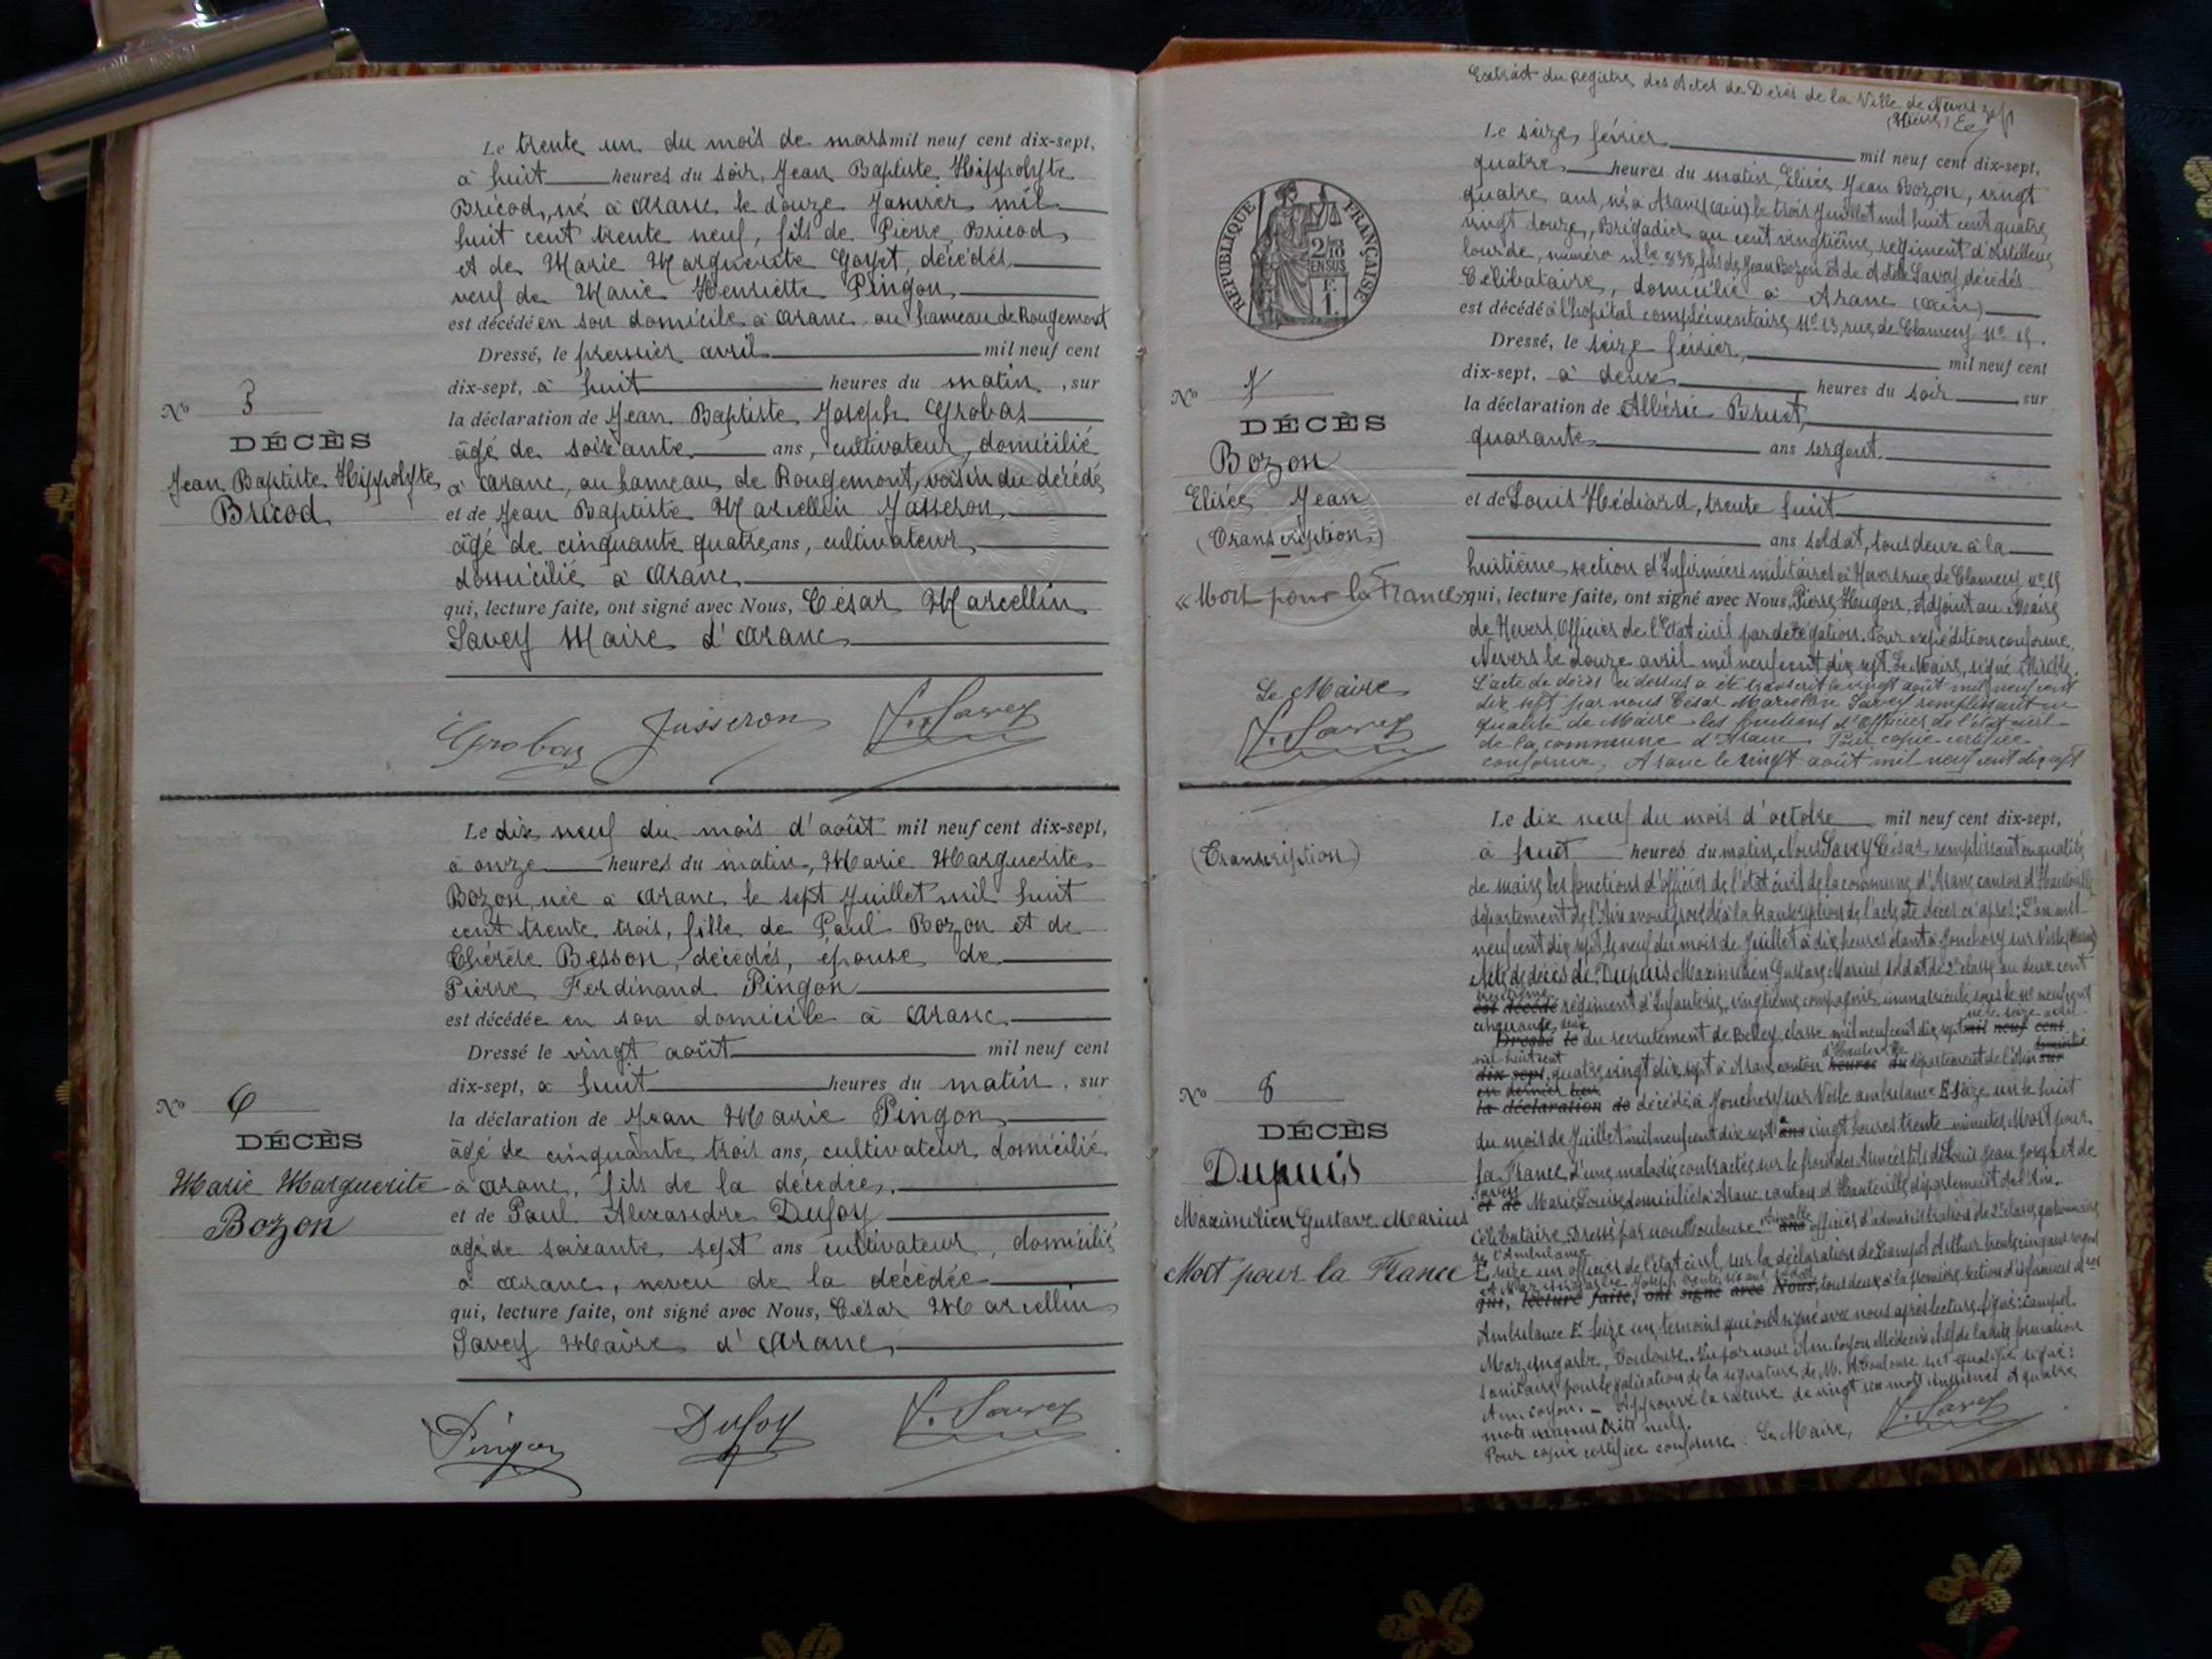 Le trente un du mois de mars mil neuf cent dix-sept,
à huit heures du soir, Jean Baptiste Hippolyte
Bricod, né à Aranc le douze Janvier mil
huit cent trente neuf, fils de Pierre Bricod,
et de Marie Marguerite Goyet, décédés
veuf de Marie Henriette Pingon,
est décédé en son domicile à Aranc au hameau de Rougemont
Dressé, le premier avril mil neuf cent
dix-sept, à huit heures du matin, sur
la déclaration de Jean Baptiste Joseph Grobas
âgé de soixante ans, cultivateur, domicilié
à Aranc, au hameau de Rougemont, voisin du décédé
et de Jean Baptiste Marcellin Jasseron,
âgé de cinquante quatre ans, cultivateur,
domicilié à Aranc,
qui, lecture faite, ont signé avec Nous, César Marcellin
Savey Maire d'Aranc
Grobas Jasseron C. Savey
No 5
DÉCÈS
Jean Baptiste Hippolyte
Bricod
Le dix neuf du mois d'août mil neuf cent dix-sept,
à onze heures du matin, Marie Marguerite
Bozon, née à Aranc le sept Juillet mil huit
cent trente trois, fille de Paul Bozon et de
Thérèse Besson, décédés, épouse de
Pierre Ferdinand Pingon
est décédée en son domicile à Aranc
Dressé le vingt août mil neuf cent
dix-sept, à huit heures du matin, sur
la déclaration de Jean Marie Pingon,
âgé de cinquante trois ans, cultivateur, domicilié
à Aranc, fils de la décédée,
et de Paul Alexandre Dufoy
agé de soixante sept ans cultivateur, domicilié
à Aranc, neveu de la décédée
qui, lecture faite, ont signé avec Nous, César Marcellin
Savey Maire d'Aranc,
Pingon Dufoy C. Savey
No 6
DÉCÈS
Marie Marguerite
Bozon
Extrait du Registre des Actes de Décès de la Ville de Nevers
(Nièvre)
Le seize février mil neuf cent dix-sept,
quatre heures du matin, Elisée Jean Bozon, vingt
quatre ans, né à Aranc (Ain) le trois Juillet mil huit cent quatre
vingt douze, Brigadier au cent vingtième régiment d'Artillerie
lourde, numéro mle 838, fils de Jean Bozon et de Adèle Savey, décédés
Célibataire, domicilié à Aranc (Ain)
est décédé à l'hopital complémentaire No 13, rue de Clamecy No 15.
Dressé, le seize février, mil neuf cent
dix-sept, à deux heures du soir sur
la déclaration de Albéric Bruet,
quarante ans sergent
et de Louis Hédiard, trente huit
ans soldat, tous deux à la
huitième section d'Infirmiers militaires à Nevers rue de Clamecy no 15
qui, lecture faite, ont signé avec Nous, Pierre Hugon, Adjoint au Maire
de Nevers, Officier de l'Etat civil par délégation. Pour expédition conforme.
Nevers le douze avril mil neuf cent dix sept. Le Maire, signé
L'acte de décès ci dessus a été transcrit le vingt août mil neuf cent
dix sept par nous César Marcellin Savey remplissant en
qualité de Maire les fonctions d'Officier de l'état civil
de la commune d'Aranc. Pour copie certifiée
conforme, Aranc le vingt août mil neuf cent dix sept
REPUBLIQUE FRANÇAISE
2/10
EN SUS
F.
1.
No 7
DÉCÈS
Bozon
Elisée Jean
(Transcription)
« Mort pour la France »
Le Maire
C. Savey
(Transcription)
No 8
DÉCÈS
Dupuis
Maximilien Gustave Marius
Mort pour la France
Le dix neuf du mois d'octobre mil neuf cent dix-sept,
à huit heures du matin, Nous Savey César, remplissant en qualité
de maire les fonctions d'officier de l'état civil de la commune d'Aranc canton d'Hauteville
département de l'Ain avons procédé à la transcription de l'acte de décès ci après: L'an mil
neuf cent dix sept, le neuf du mois de Juillet à dix heures étant à Jonchery sur Vesle (Marne)
Acte de décès de Dupuis Maximilien Gustave Marius, soldat de 2e classe au deux cent
est décédé régiment d'Infanterie, vingtième compagnie, immatriculé sous le No neuf cent
cinquante deux
Dressé le du recrutement de Belley, classe mil neuf cent dix sept né le seize avril mil neuf cent
mil huit cent
dix-sept, quatre vingt dix sept à Aranc canton d'Hauteville heures du département de l'Ain sur
en dernier lieu
la déclaration de décédé à Jonchery sur Vesle ambulance E seize un le huit
du mois de Juillet mil neuf cent dix sept ans vingt heures trente minutes, Mort pour
la France, d'une maladie contractée sur le front des Armées, fils de Louis Jean Joseph et de
Savey
et de Marie Louise, domiciliés à Aranc canton d'Hauteville département de l'Ain.
Célibataire, Dressé par nous Toulouse ans officier d'administration de 2e classe gestionnaire
de l'Ambulance
E seize un officier de l'état civil, sur la déclaration de Campel Arthur trente cinq ans sergent
qui, lecture faite, ont signé avec Nous, tous deux à la première section d'infirmiers
Ambulance E seize un, témoins qui ont signé avec nous après lecture, signé: Campel
Mazingarbe, Toulouse. Vu par nous Médecin chef de la dite formation
sanitaire pour légalisation de la signature de M. Toulouse sus qualifié signé:
Approuvé la rature de vingt six mots imprimés et quatre
mots manuscrits nuls.
Pour copie certifiée conforme: Le Maire, C. Savey